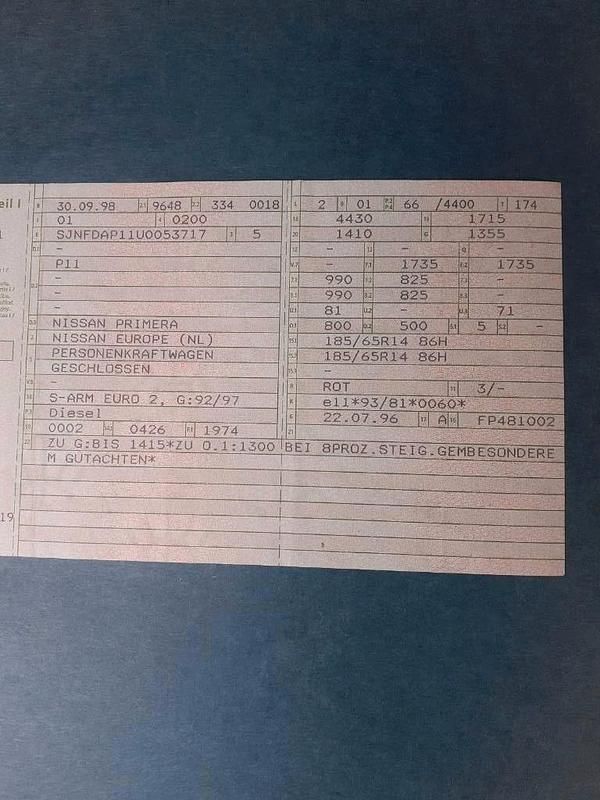 eil I
30.09.98 9648 334 0018 2 01 66 /4400 174
01 0200 4430 1715
SJNFDAP11U0053717 5 1410 1355
- - - -
P11 - 1735 1735
- 990 825 -
- 990 825 -
- 81 - 71
NISSAN PRIMERA 800 500 5 -
NISSAN EUROPE (NL) 185/65R14 86H
PERSONENKRAFTWAGEN 185/65R14 86H
GESCHLOSSEN -
- ROT 3/-
S-ARM EURO 2, G:92/97 e11*93/81*0060*
Diesel 22.07.96 A FP481002
0002 0426 1974
ZU G:BIS 1415*ZU O.1:1300 BEI 8PROZ.STEIG.GEMBESONDERE
M GUTACHTEN*
19